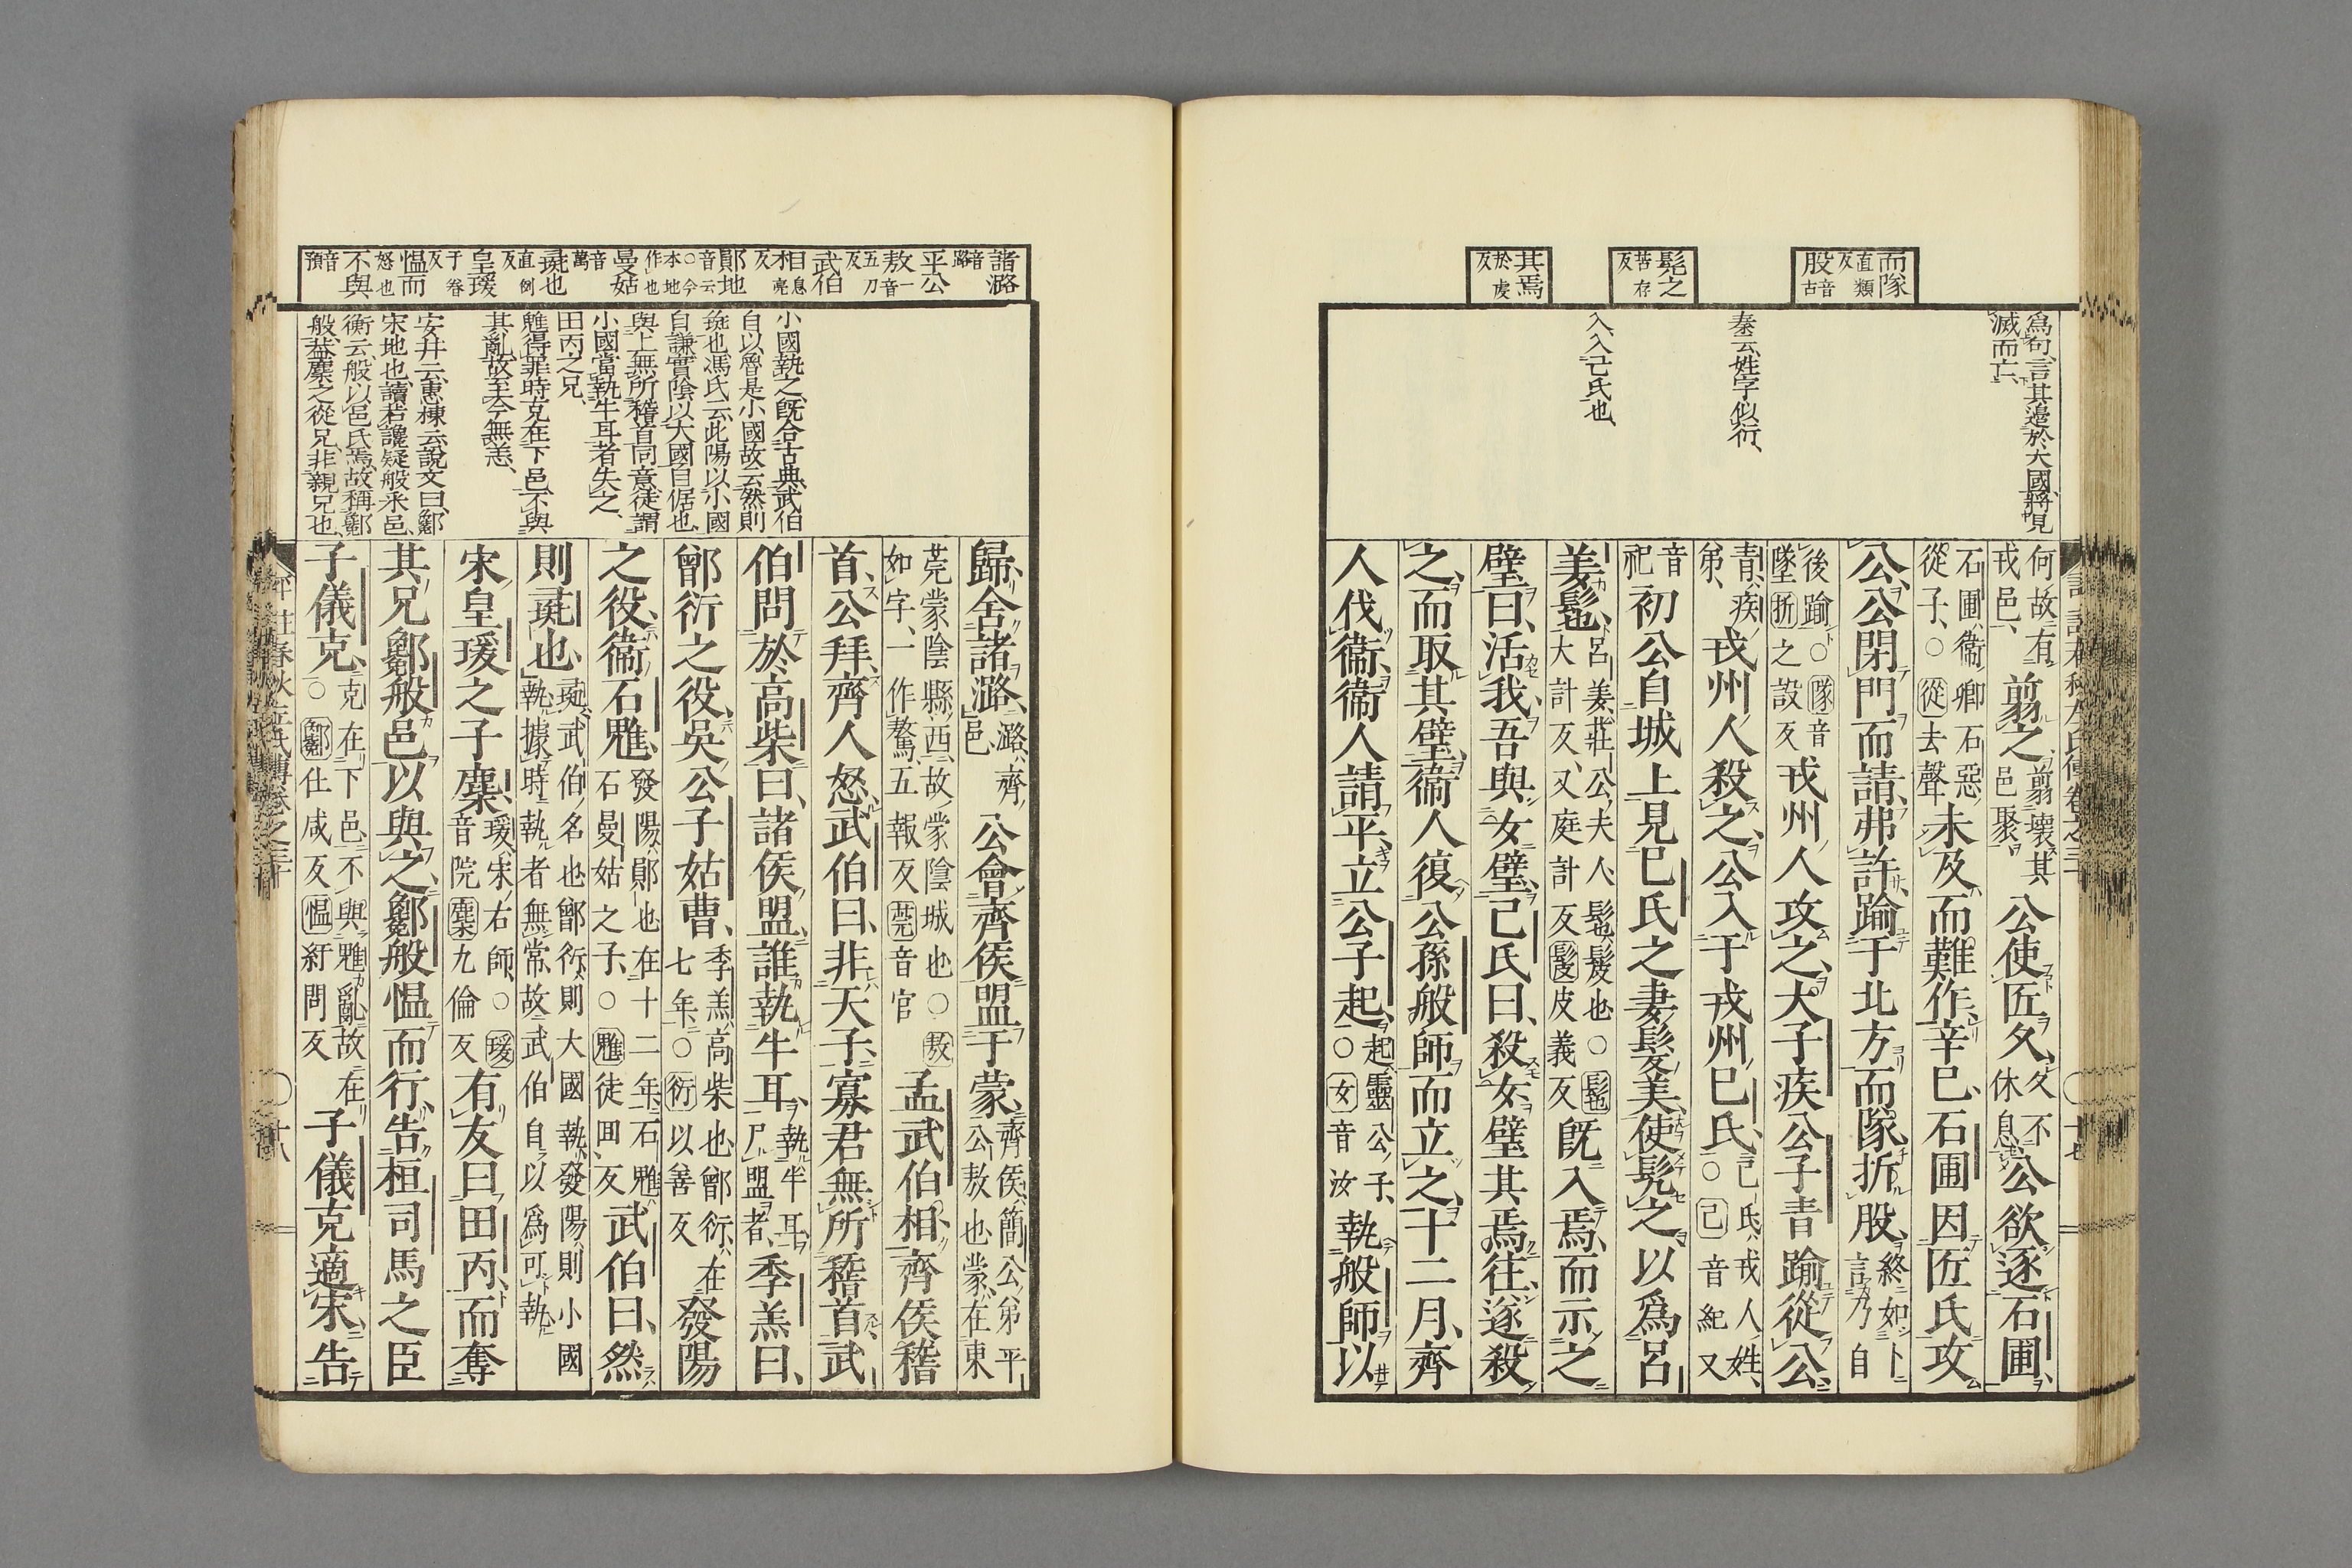 而隊 直類反 股 音古
髡之 苦存反
其焉 於虔反
爲句、言其邊於大國、將見
滅而亡、
秦云、姓字似衍、
入、入己氏也、
何故有戎邑、翦之、翦壞其邑聚、公使匠久、久不休息、公欲逐石圃、
石圃、衞卿石惡從子、○從去聲未及而難作、辛巳、石圃因匠氏攻
公、公閉門而請、弗許、踰于北方而隊、折股、終如卜言、乃自
後踰、○隊音墜折之設反戎州人攻之、大子疾公子青踰從公、
青、疾弟、戎州人殺之、公入于戎州己氏、己氏、戎人姓、○己音紀又
音祀初公自城上見己氏之妻髮美、使髡之以爲呂
姜髢、呂姜、莊公夫人、髢、髲也、○髢大計反、又庭計反髲皮義反既入焉、而示之
璧曰、活我、吾與女璧、己氏曰、殺女、璧其焉往、遂殺
之、而取其璧、衞人復公孫般師而立之、十二月、齊
人伐衞、衞人請平、立公子起、起、靈公子、○女音汝執般師以
諸潞 音路
平公
敖 一音五刀反
武伯
相 息亮反
鄖地 音云○今本地作也
曼姑 音萬
彘也 直例反
皇瑗 于眷反
愠而 怒也
不與 音預
小國執之、既合古典、武伯
自以魯是小國、故云然則
彘也、馮氏云、此陽以小國
自謙、實陰以大國自倨也、
與上無所稽首同意、徒謂
小國當執牛耳者失之、
田丙之兄、
魋得罪時、克在下邑、不與
其亂、故至今無恙、
安井云、惠棟云、說文曰、酁
宋地也、讀若讒、疑般采邑、
衡云、般以邑氏焉、故稱酁
般、蓋麇之從兄、非親兄也、
歸、舍諸潞、潞、齊邑、公會齊侯盟于蒙、齊侯、簡公弟平公敖也、蒙、在東
莞蒙陰縣西、故蒙陰城也○敖如字、一作驁、五報反莞音官孟武伯相、齊侯稽
首、公拜、齊人怒、武伯曰、非天子、寡君無所稽首、武
伯問於高柴曰、諸侯盟、誰執牛耳、執牛耳、尸盟者、季羔曰、
鄫衍之役、吳公子姑曹、季羔、高柴也、鄫衍、在七年、○衍以善反發陽
之役、衞石魋、發陽、鄖也、在十二年、石魋、石曼姑之子、○魋徒回反武伯曰、然
則彘也、彘、武伯名也、鄫衍則大國執、發陽則小國執、據時執者無常、故武伯自以爲可執
宋皇瑗之子麇、瑗、宋右師、○瑗音院麇九倫反有友曰田丙、而奪
其兄酁般邑以與之、酁般愠而行、告桓司馬之臣
子儀克、克在下邑、不與魋亂、故在○酁仕咸反愠紆問反子儀克適宋、告